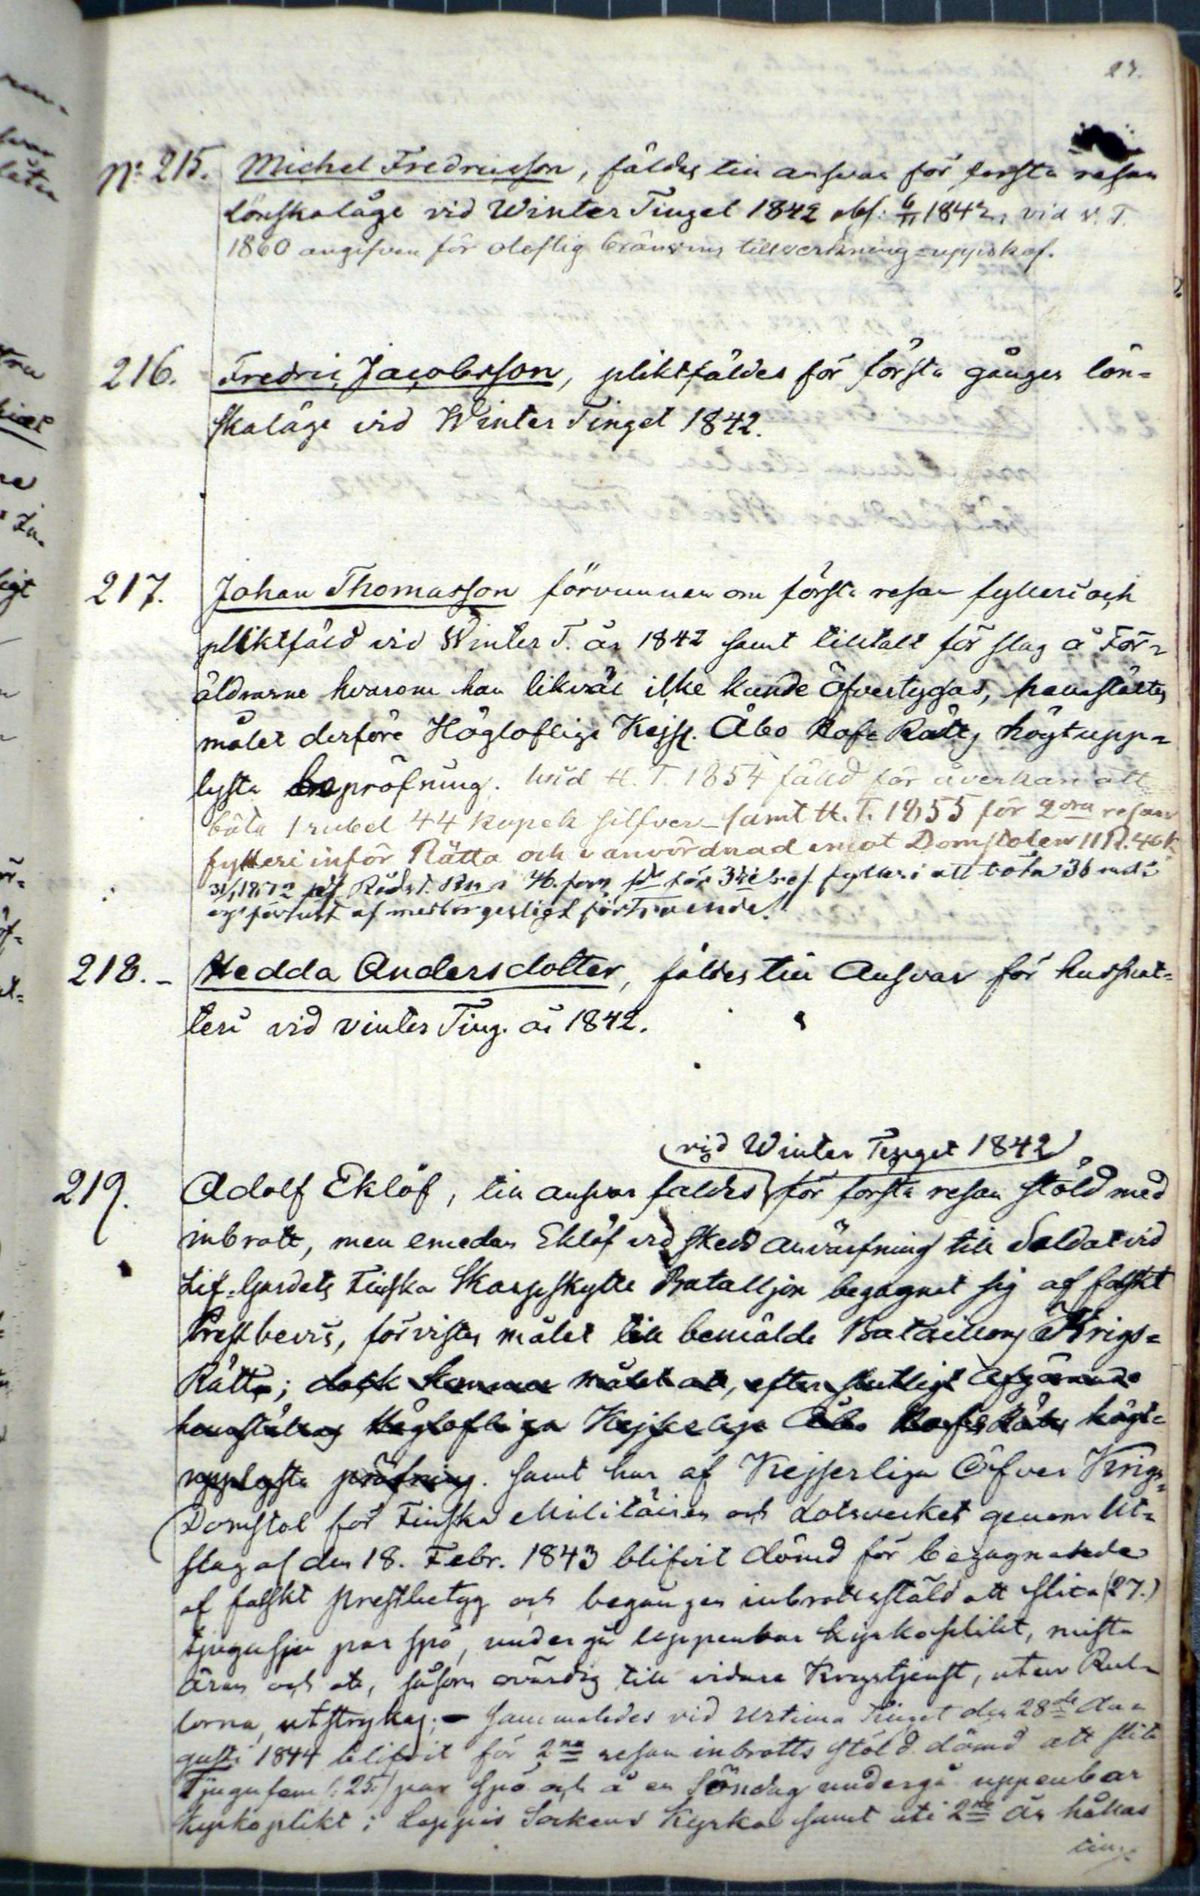 27.
No 215. Michel Fredricsson, fäldes till ansvar för första resan
lönskaläge vid Winter Tinget 1842 abs: 6/11 1842, vid v. T.
1860 angifven för oloflig bränvins tillverkning - uppskof.
216. Fredric Jacobsson, pliktfäldes för första gången lön-
skaläge vid Winter Tinget 1842.
217. Johan Thomasson förvunnen om första resan fylleri och
pliktfäld vid Winter T. år 1842 samt tilltalt för slag å För-
äldrarne hvarom han likväl icke kunde öfvertygas, hemstältes
målet derföre Högloflige Kejsl. Åbo Hof Rätts högtupp-
lysta bepröfning. vid H. T. 1854 fäld för åverkan att
böta 1 rubel 44 kopek silfver - samt H. T. 1855 för 2dra resan
fylleri inför Rätta och vanvördnad emot Domstolen 11 R. 40 k
1872 för 3die fylleri att böta 36 m
förlust af medborgerligt förtroende.
218. - Hedda Andersdotter, fäldes till Ansvar för hussnat-
teri vid vinter Ting. år 1842.
vid Winter Tinget 1842
219. Adolf Eklöf, till ansvar faldes för första resan stöld med
inbrott, men emedan Eklöf vid skedd anvärfning till Soldat vid
Lif-Gardets Finska Skarpskytte Bataljon begagnet sig af falskt
Prestbevis, förvistes målet till bemälde Bataillons Krigs-
Rätt; dock kommer målet att, efter slutligt afgörande
hemställas Högloflige Kejserlige Åbo Hofrätts högt-
upplysta pröfning. samt har af Kejserliga Öfver Krigs-
Domstol för Finska Militairen och Lotsverket genom Ut-
slag af den 18. Febr. 1843 blifvit dömd för begagnande
af falskt prestbetyg och begången inbrottsstöld att slita (27.)
tjugusju par spö, undergå uppenbar kyrkoplikt, mista
äran och att, såsom ovärdig till vidare Krigstjenst, utur Rul-
lorna utstrykas; - sammaledes vid Urtima Tinget den 28de Au-
gusti 1844 blifvit för 2ra resan inbrotts stöld dömd att slita
Tjugufem (: 25) par spö och å en Söndag undergå uppenbar
kyrkoplikt i Loppis Sockens Kyrka samt uti 2ne År hållas